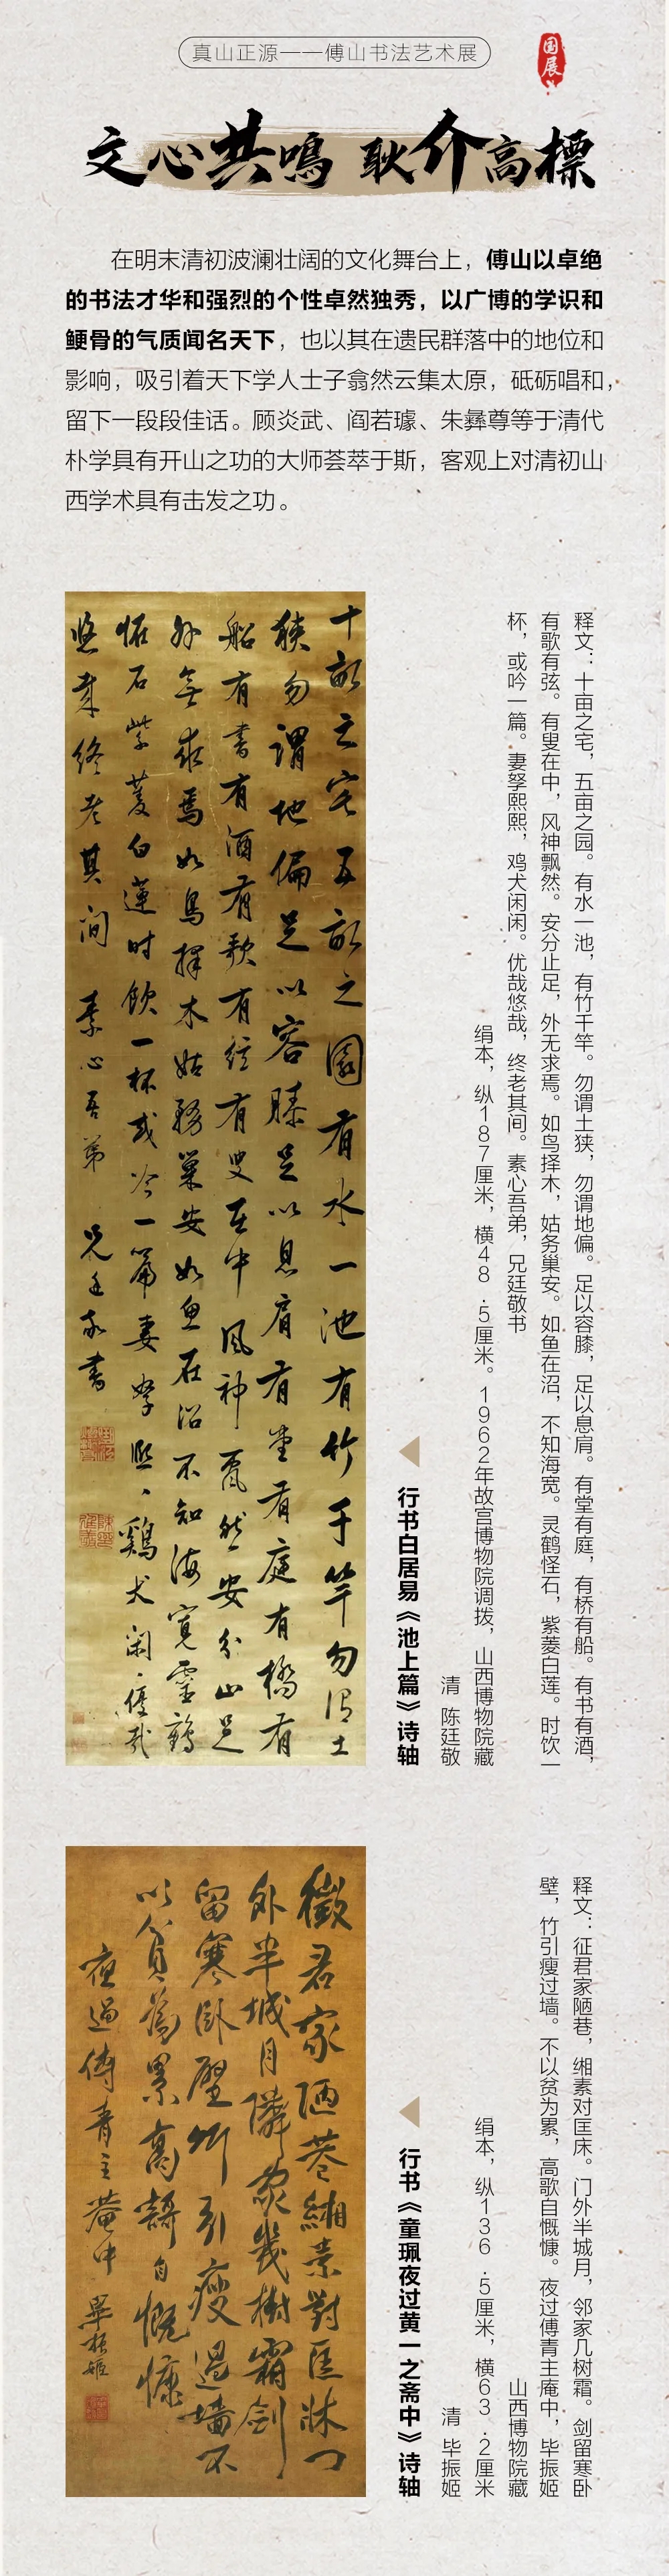 真山正源——傅山书法艺术展
国展
文心共鳴 耿介高標
在明末清初波澜壮阔的文化舞台上，傅山以卓绝
的书法才华和强烈的个性卓然独秀，以广博的学识和
鲠骨的气质闻名天下，也以其在遗民群落中的地位和
影响，吸引着天下学人士子翕然云集太原，砥砺唱和，
留下一段段佳话。顾炎武、阎若璩、朱彝尊等于清代
朴学具有开山之功的大师荟萃于斯，客观上对清初山
西学术具有击发之功。
释文：十亩之宅，五亩之园。有水一池，有竹千竿。勿谓土狭，勿谓地偏。足以容膝，足以息肩。有堂有庭，有桥有船。有书有酒，
有歌有弦。有叟在中，风神飘然。安分止足，外无求焉。如鸟择木，姑务巢安。如鱼在沼，不知海宽。灵鹤怪石，紫菱白莲。时饮一
杯，或吟一篇。妻孥熙熙，鸡犬闲闲。优哉悠哉，终老其间。素心吾弟，兄廷敬书
绢本，纵187厘米，横48.5厘米。1962年故宫博物院调拨，山西博物院藏
清 陈廷敬
行书白居易《池上篇》诗轴
十畝之宅五畝之園有水一池有竹千竿勿谓土
狭勿謂地偏足以容膝足以息肩有堂有庭有橋有
船有書有酒有歌有弦有叟在中風神飄然安分止足
外無求焉如鳥擇木姑務巢安如魚在沼不知海寬靈鶴
怪石紫菱白蓮時飲一杯或吟一篇妻孥熙〻鷄犬閑〻優哉
悠哉終老其间 素心吾弟 兄廷敬書
释文：征君家陋巷，缃素对匡床。门外半城月，邻家几树霜。剑留寒卧
壁，竹引瘦过墙。不以贫为累，高歌自慨慷。夜过傅青主庵中，毕振姬
山西博物院藏
绢本，纵136.5厘米，横63.2厘米
清 毕振姬
行书《童珮夜过黄一之斋中》诗轴
徵君家陋巷緗素對匡牀门
外半城月隣家幾樹霜劍
留寒卧壁竹引瘦過墻不
以貧為累高謌自慨慷
夜過傅青主菴中 畢振姬